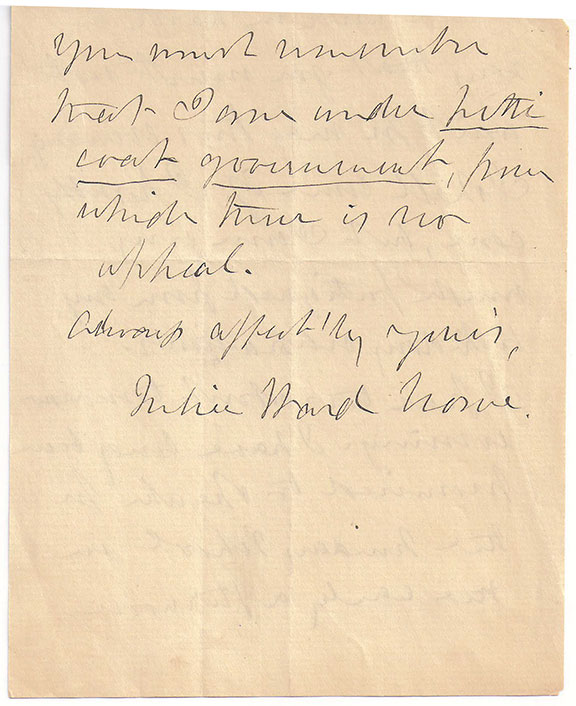 You must remember
that I am under petti
coat government, from
which there is no
appeal.
always affect'ly yours,
Julia Ward Howe.